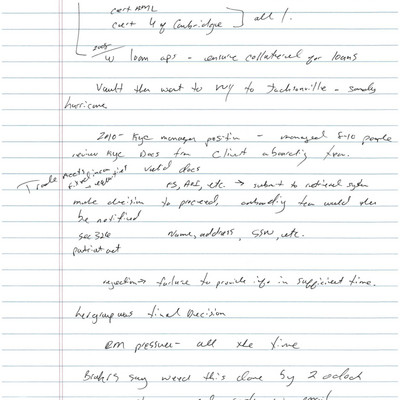 cert AML
cert U of Cambridge ] all 1.
w loan aps - ensure collateral for loans
Vault then went to to Jacksonville - Sandy
hurricane
2010 - Kyc manager position - managed 8-10 people
review Kyc Docs from Client onboarding team.
valid docs
etc. → submit to retrieval system
make decision to proceed, onboarding team would then
be notified
sec 326 Name, address, SSN, etc.
patriot act
rejection → failure to provide info in sufficient time.
her group was final decision
RM pressure - all the time
Brokers say need this done by 2 oclock
email